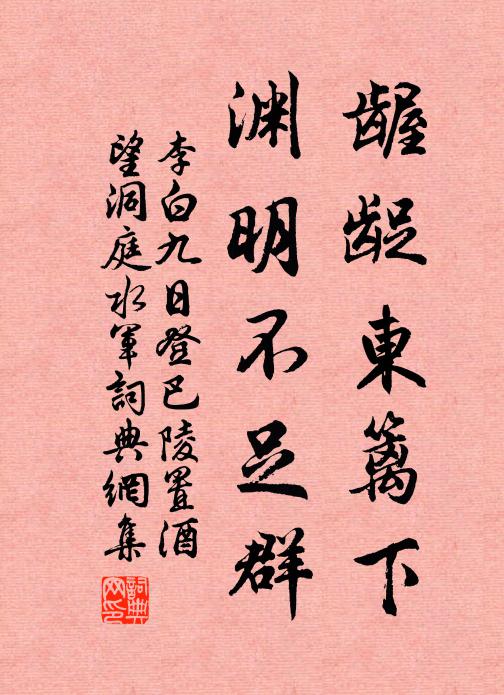 齷齪東籬下
淵明不足群
李白九日登巴陵置酒
望洞庭水軍詞典網集
詞典網印